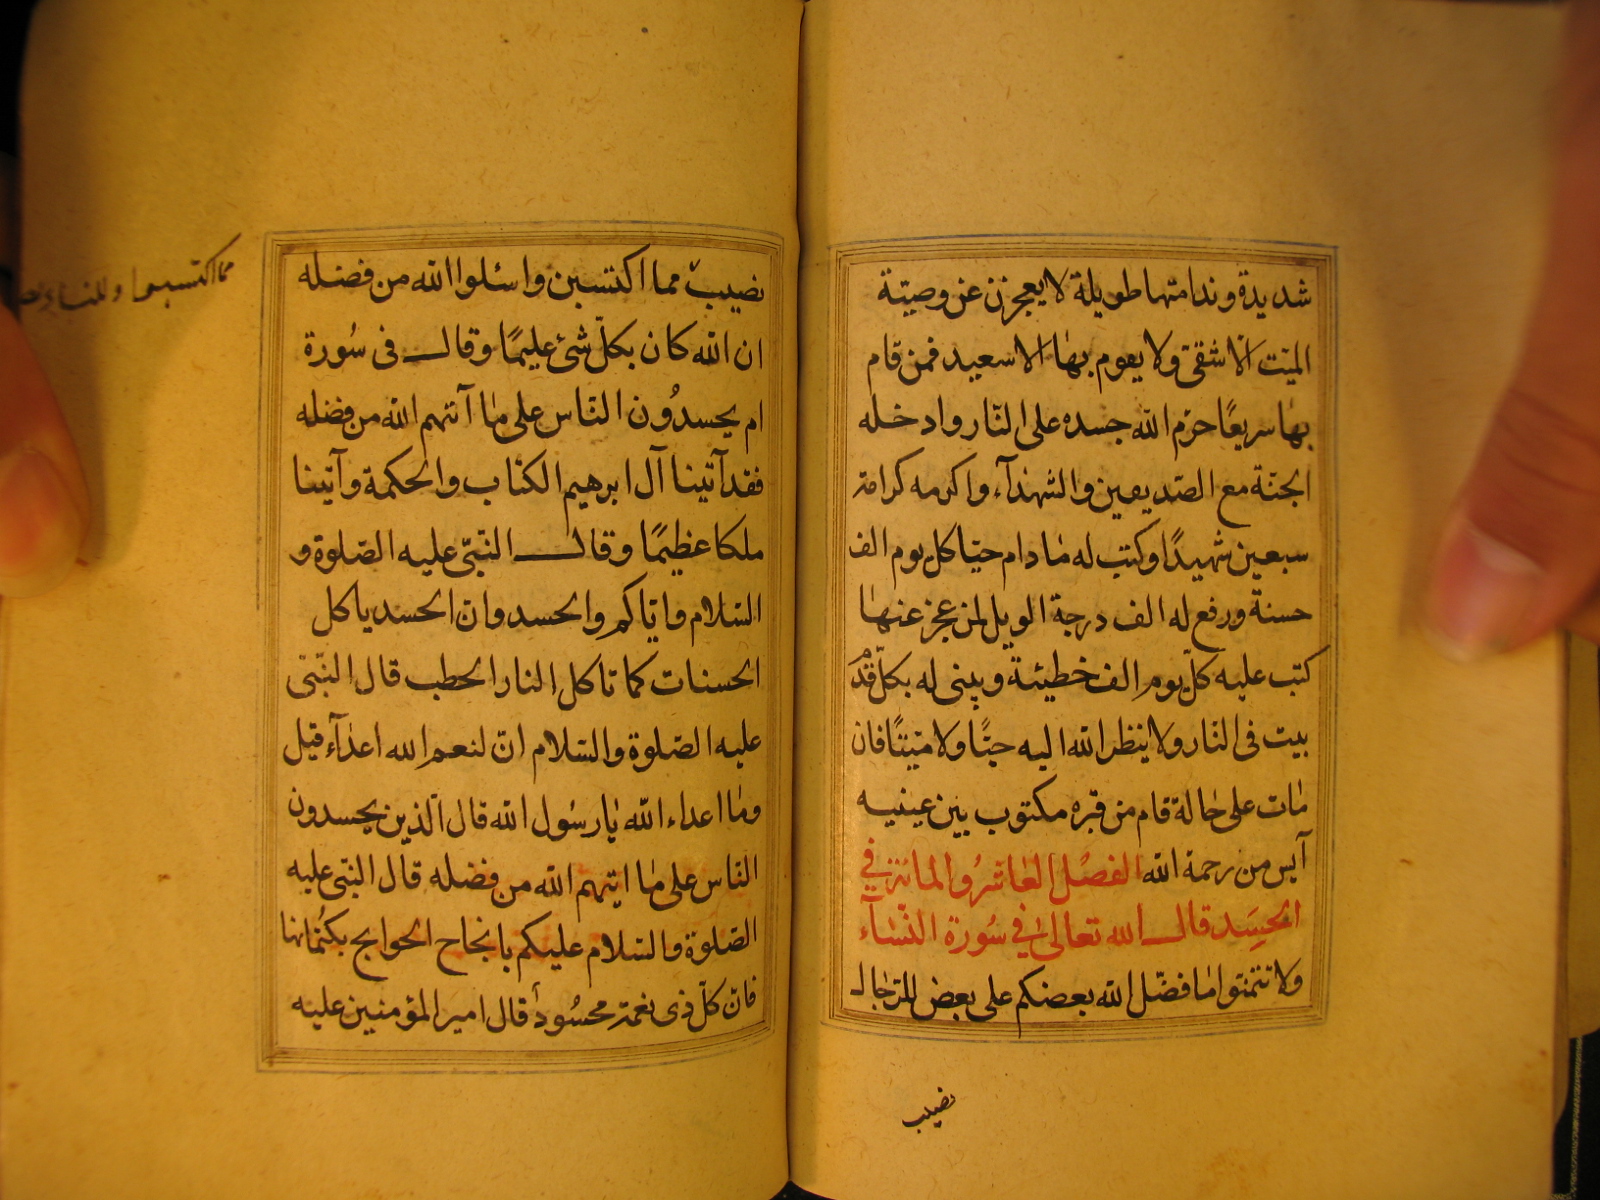 شديدة وندامتها طويلة لا يعجزن عن وصيّة
الميّت الا شقىّ ولا يقوم بها الا سعيد فمن قام
بها سريعًا حرّم الله جسده على النّار وادخله
الجنّة مع الصّديقين والشّهدآء واكرمه كرامة
سبعين شهيدًا وكتب له ما دام حيّا كل يوم الف
حسنة ورفع له الف درجة الويل لمن عجز عنها
كتب عليه كلّ يوم الف خطيئة ويبنى له بكلّ قدم
بيت فى النّار ولا ينظر الله اليه حيًّا ولا ميّتًا فان
مات على حالة قام من قبره مكتوب بين عينيه
آيس من رحمة الله الفصل العاشر والمائة في
الحسد قال الله تعالى في سورة النسآء
ولا تتمنّوا ما فضّل الله بعضكم على بعض للرّجال
نصيب
نصيب مما اكتسبن واسئلوا الله من فضله
ان الله كان بكلّ شئ عليمًا وقال فى سورة
ام يحسدون النّاس على ما آتهم الله من فضله
فقد آتينا آل ابرهيم الكتاب والحكمة وآتينا
ملكا عظيمًا وقال النّبىّ عليه الصّلوة و
السّلام واياكم والحسد وانّ الحسد ياكل
الحسنات كما تاكل النار الحطب قال النّبىّ
عليه الصّلوة والسّلام انّ لنعم الله اعدآء قيل
وما اعداء الله يا رسول الله قال الّذين يحسدون
النّاس على ما اتيهم الله من فضله قال النّبى عليه
الصّلوة والسّلام عليكم بانجاح الحوايج بكتمانها
فانّ كلّ ذى نعمة محسود قال امير المؤمنين عليه
مما اكتسبوا وللنساء